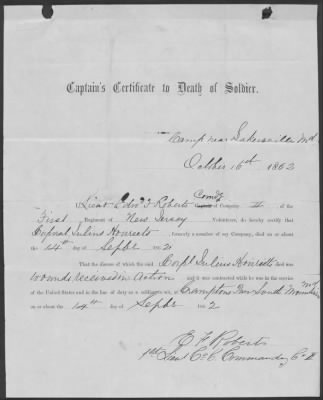 Captain's Certificate to Death of Soldier.
Camp near Bakersville Md
October 16th 1862
I Lieut Edwd F Roberts Comdg Captain of Company H of the
First Regiment of New Jersey Volunteers, do hereby certify that
Corporal Julius formerly a member of my Company, died on or about
the 14th day of Septbr 1862
That the disease of which the said Corpl Julius died was
wounds received in Action and it was contracted while he was in the service
of the United States and in the line of duty as a soldier at Cramptons Pass South Mountain Md
on or about the 14th day of Septbr 1862
E F Roberts
1st Lieut Co C Commanding Co H